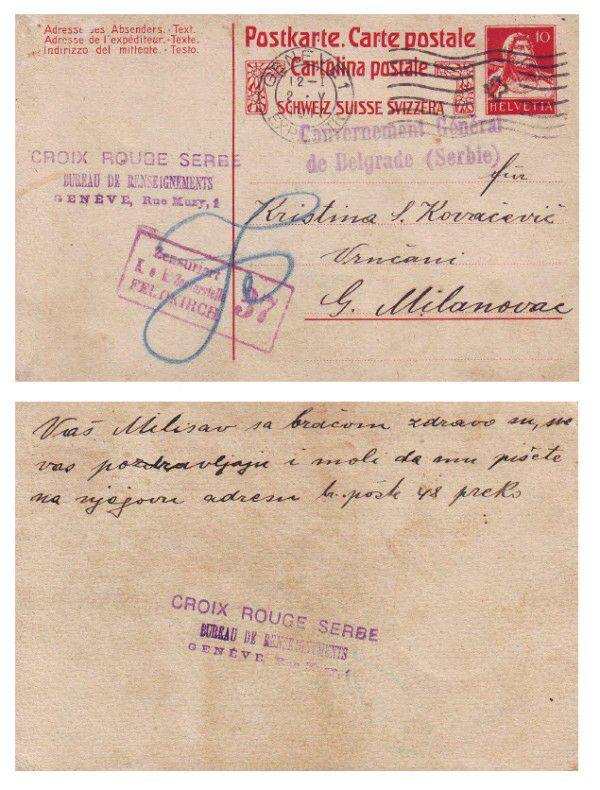 Adresse des Absenders.-Text.
Adresse de l'expéditeur.-Texte.
Indirizzo del mittente.-Testo.
Postkarte. Carte postale
Cartolina postale
SCHWEIZ SUISSE SVIZZERA
10
HELVETIA
GENÈVE 1
12-1
2. V
Gouvernement Général
de Belgrade (Serbie)
CROIX ROUGE SERBE
BUREAU DE RENSEIGNEMENTS
GENÈVE, Rue Muzy, 1
für
Kristina S. Kovačević
Vrnčani
G. Milanovac
Zensuriert
K. u. k. Zensurstelle
FELDKIRCH
37
Vaš Milisav sa braćom zdravo su,
vas pozdravljaju i moli da mu pišete
na njegovu adresu br. pošte 48 preko
CROIX ROUGE SERBE
BUREAU DE RENSEIGNEMENTS
GENÈVE, Rue Muzy, 1